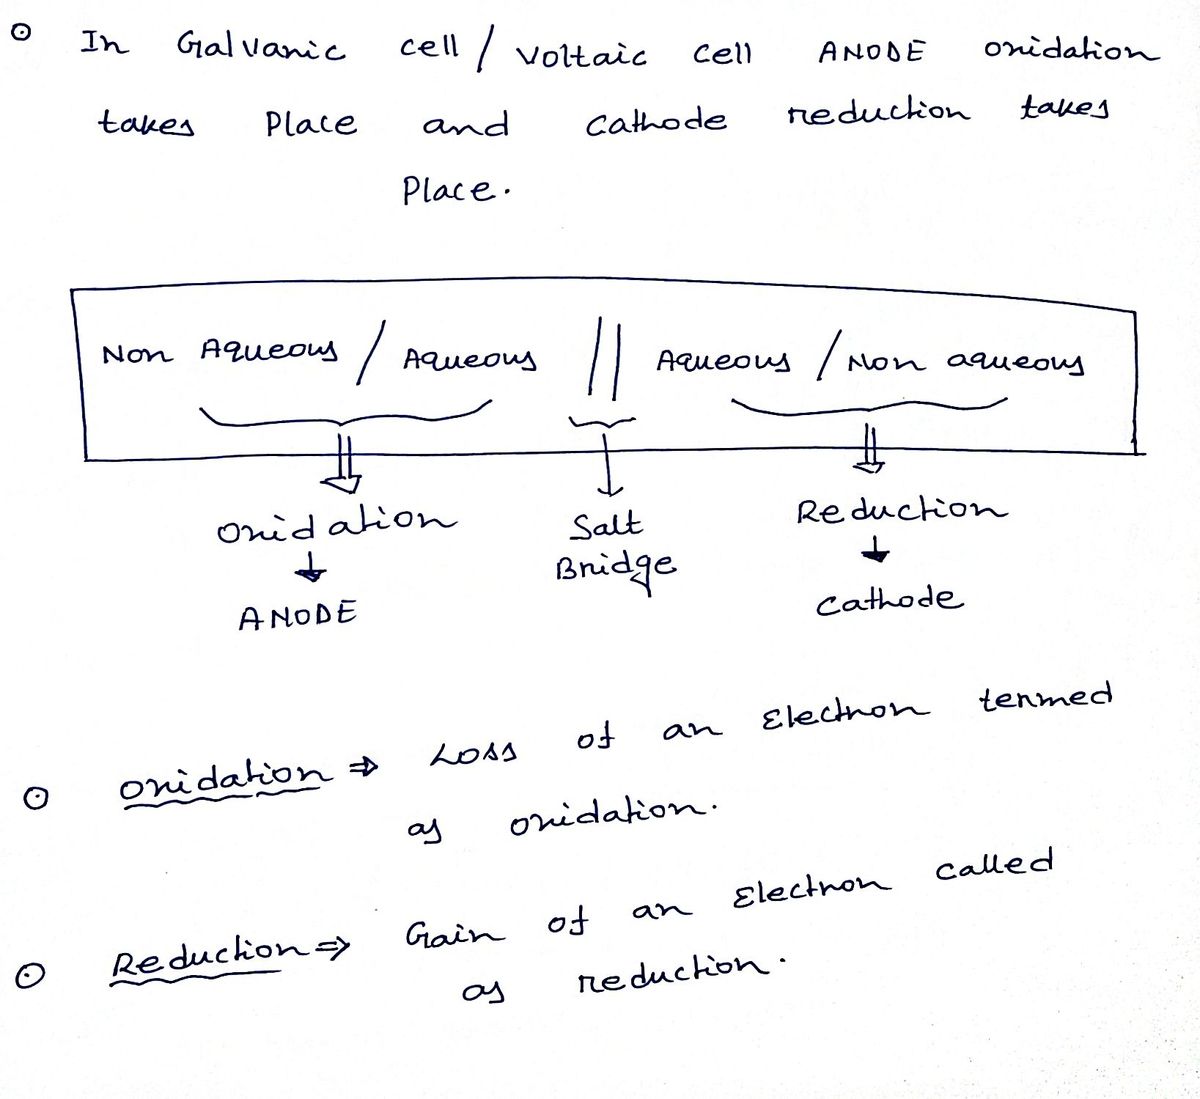 In Galvanic cell / voltaic cell ANODE oxidation
takes Place and cathode reduction takes
Place.
Non Aqueous / Aqueous || Aqueous / Non aqueous
Oxidation
Salt
Bridge
Reduction
ANODE
Cathode
Oxidation ⇒ Loss of an Electron termed
as oxidation.
Reduction ⇒ Gain of an Electron called
as reduction.